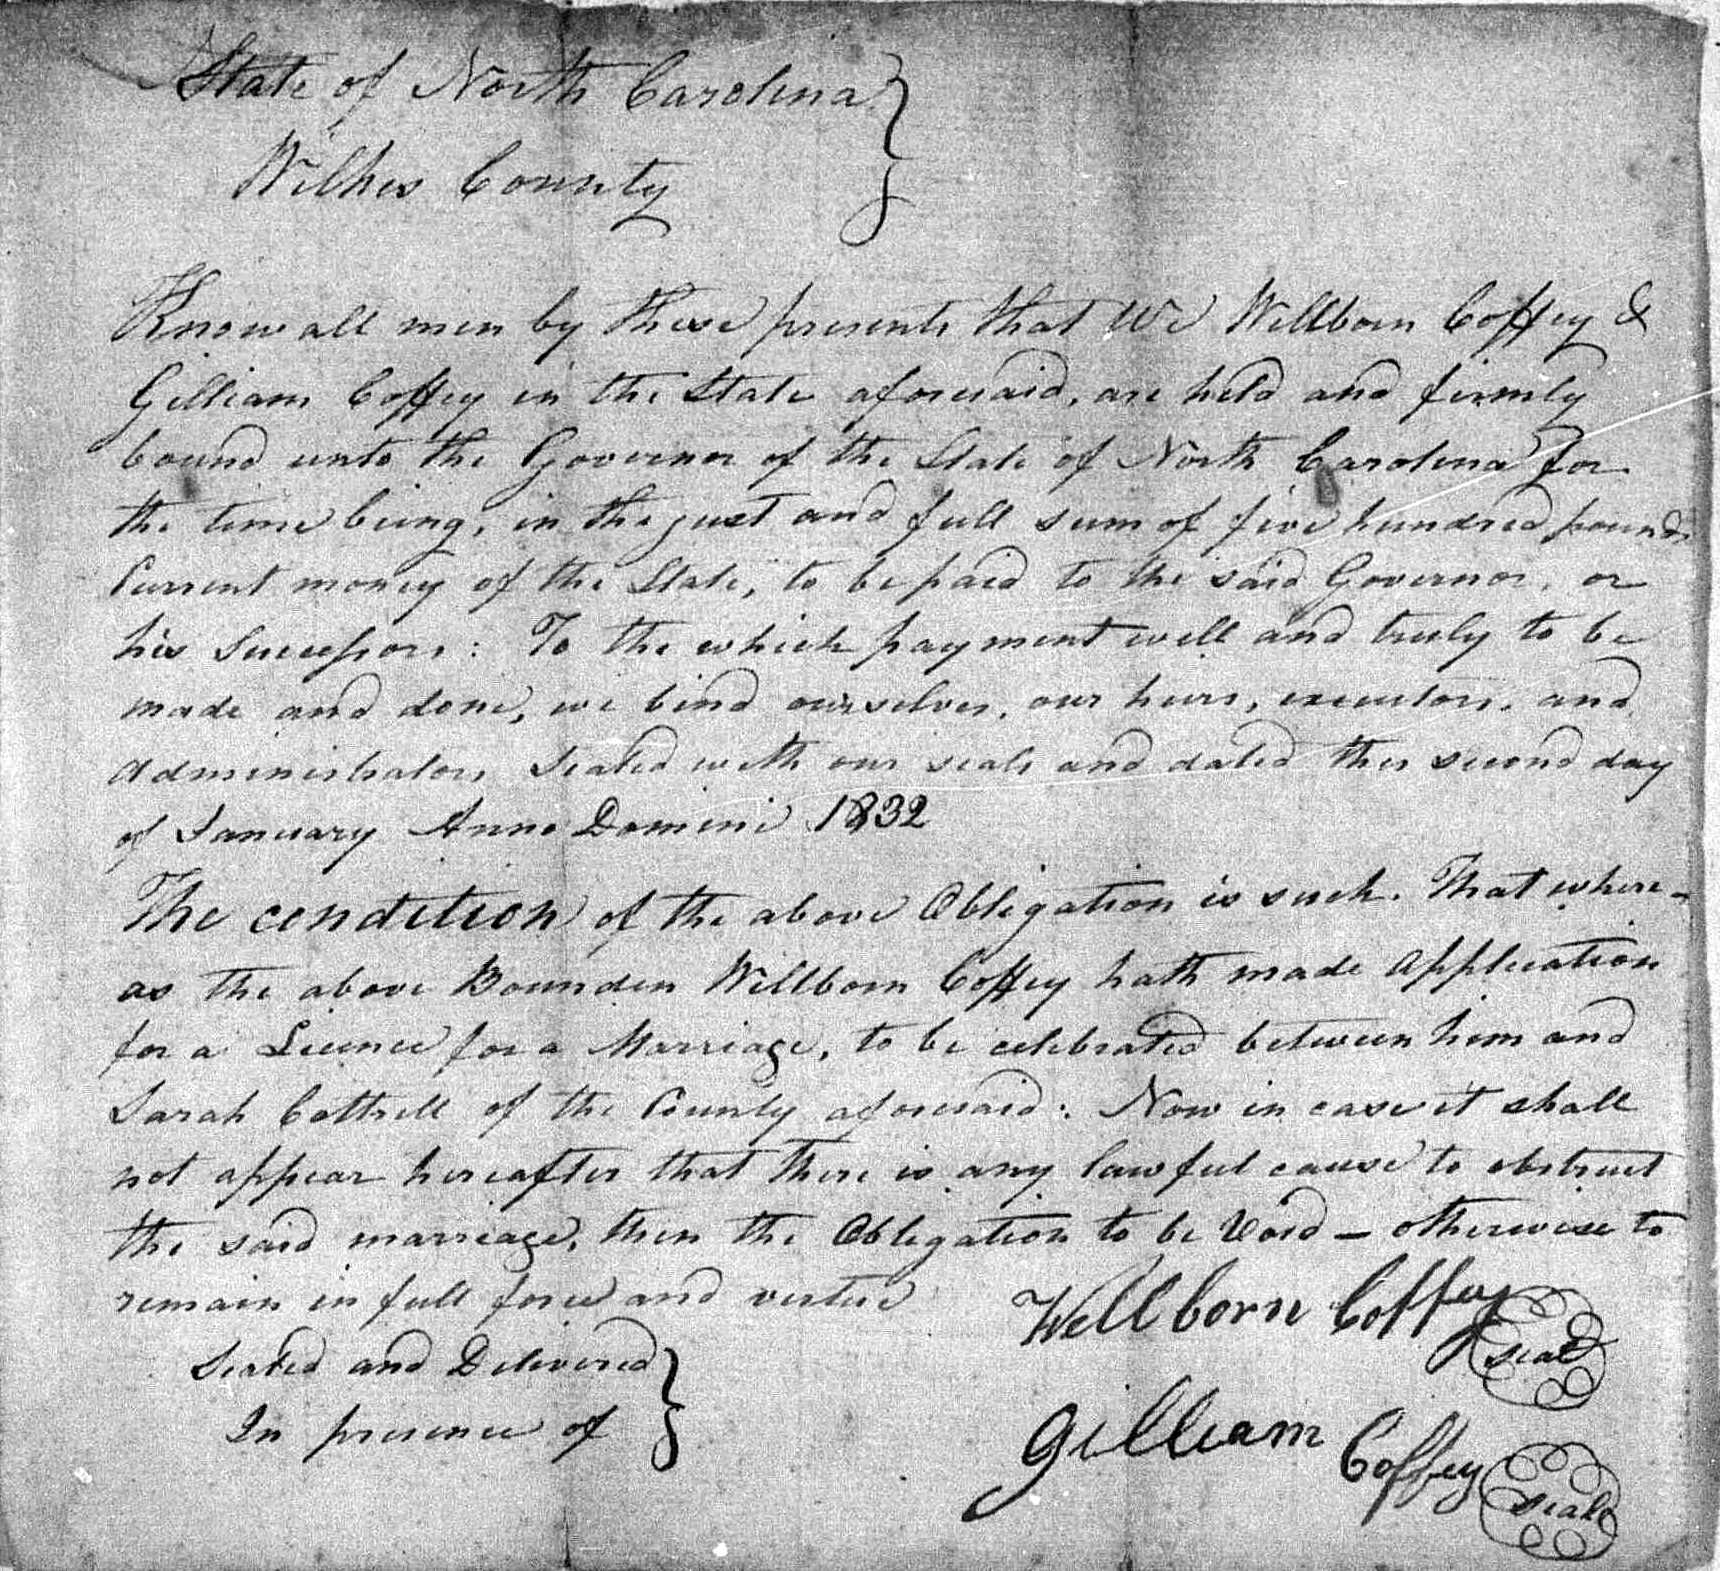 State of North Carolina
Wilkes County
Know all men by these presents that We Willborn Coffey &
Gilliam Coffey in the State aforesaid, are held and firmly
bound unto the Governor of the State of North Carolina for
the time being, in the just and full sum of five hundred pounds
Current money of the State, to be paid to the said Governor, or
his Successors: To the which payment well and truly to be
made and done, we bind ourselves, our heirs, executors, and
Administrators Sealed with our seals and dated this second day
of January Anno Domini 1832
The condition of the above Obligation is such. That where-
as the above Bounden Willborn Coffey hath made Application
for a Licence for a Marriage, to be celebrated between him and
Sarah Cottrell of the County aforesaid: Now in case it shall
not appear hereafter that there is any lawful cause to obstruct
the said marriage, then the Obligation to be Void — otherwise to
remain in full force and virtue
Wellborn Coffey seal
Sealed and Delivered
In presence of
Gilliam Coffey seal